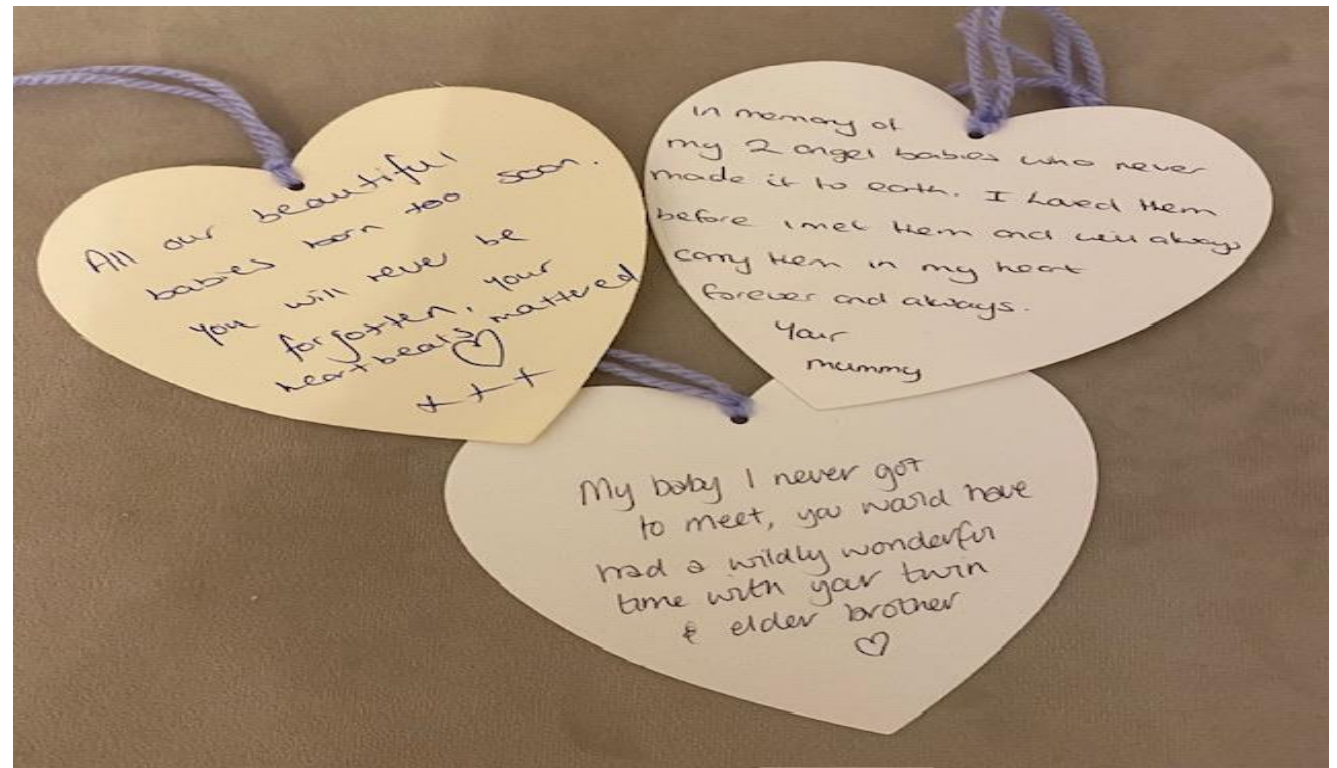 All our beautiful
babies born too soon.
You will never be
forgotten, your
heartbeats mattered
x x x
In memory of
my 2 angel babies who never
made it to earth. I loved them
before i met them and will always
carry them in my heart
forever and always.
Your
mummy
My baby I never got
to meet, you would have
had a wildly wonderful
time with your twin
& elder brother